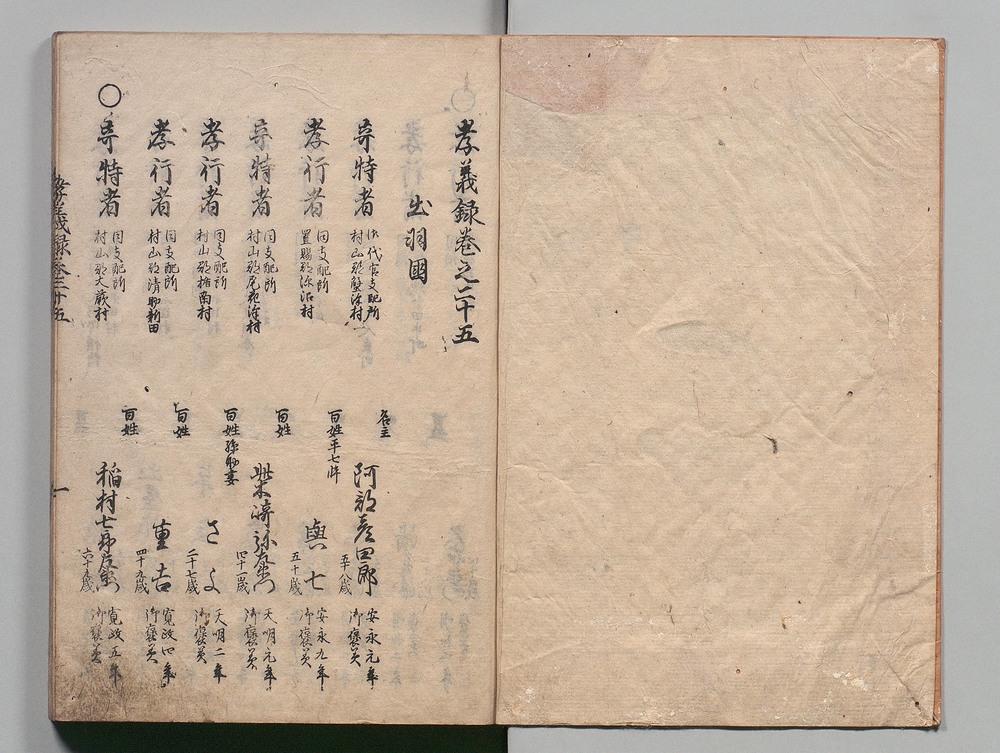 孝義録巻之三十五
出羽國
竒特者 御代官支配所 村山郡蟹沢村 名主 阿部彦四郎 五十八歳 安永元年 御褒美
孝行者 同支配所 置賜郡 村 百姓平七忰 與七 五十歳 安永九年 御褒美
竒特者 同支配所 村山郡尾花沢村 百姓 柴崎弥左衛門 四十一歳 天明元年 御褒美
孝行者 同支配所 村山郡楯南村 百姓孫助妻 さよ 二十七歳 天明二年 御褒美
孝行者 同支配所 村山郡清助新田 百姓 重吉 四十九歳 寛政四年 御褒美
○竒特者 同支配所 村山郡大蕨村 百姓 稲村七郎左衛門 六十五歳 寛政五年 御褒美
孝義録巻三十五 一